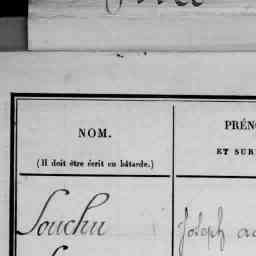 NOM.
(Il doit être écrit en bâtarde.)
PRÉN
ET SUR
Souchu
Joseph